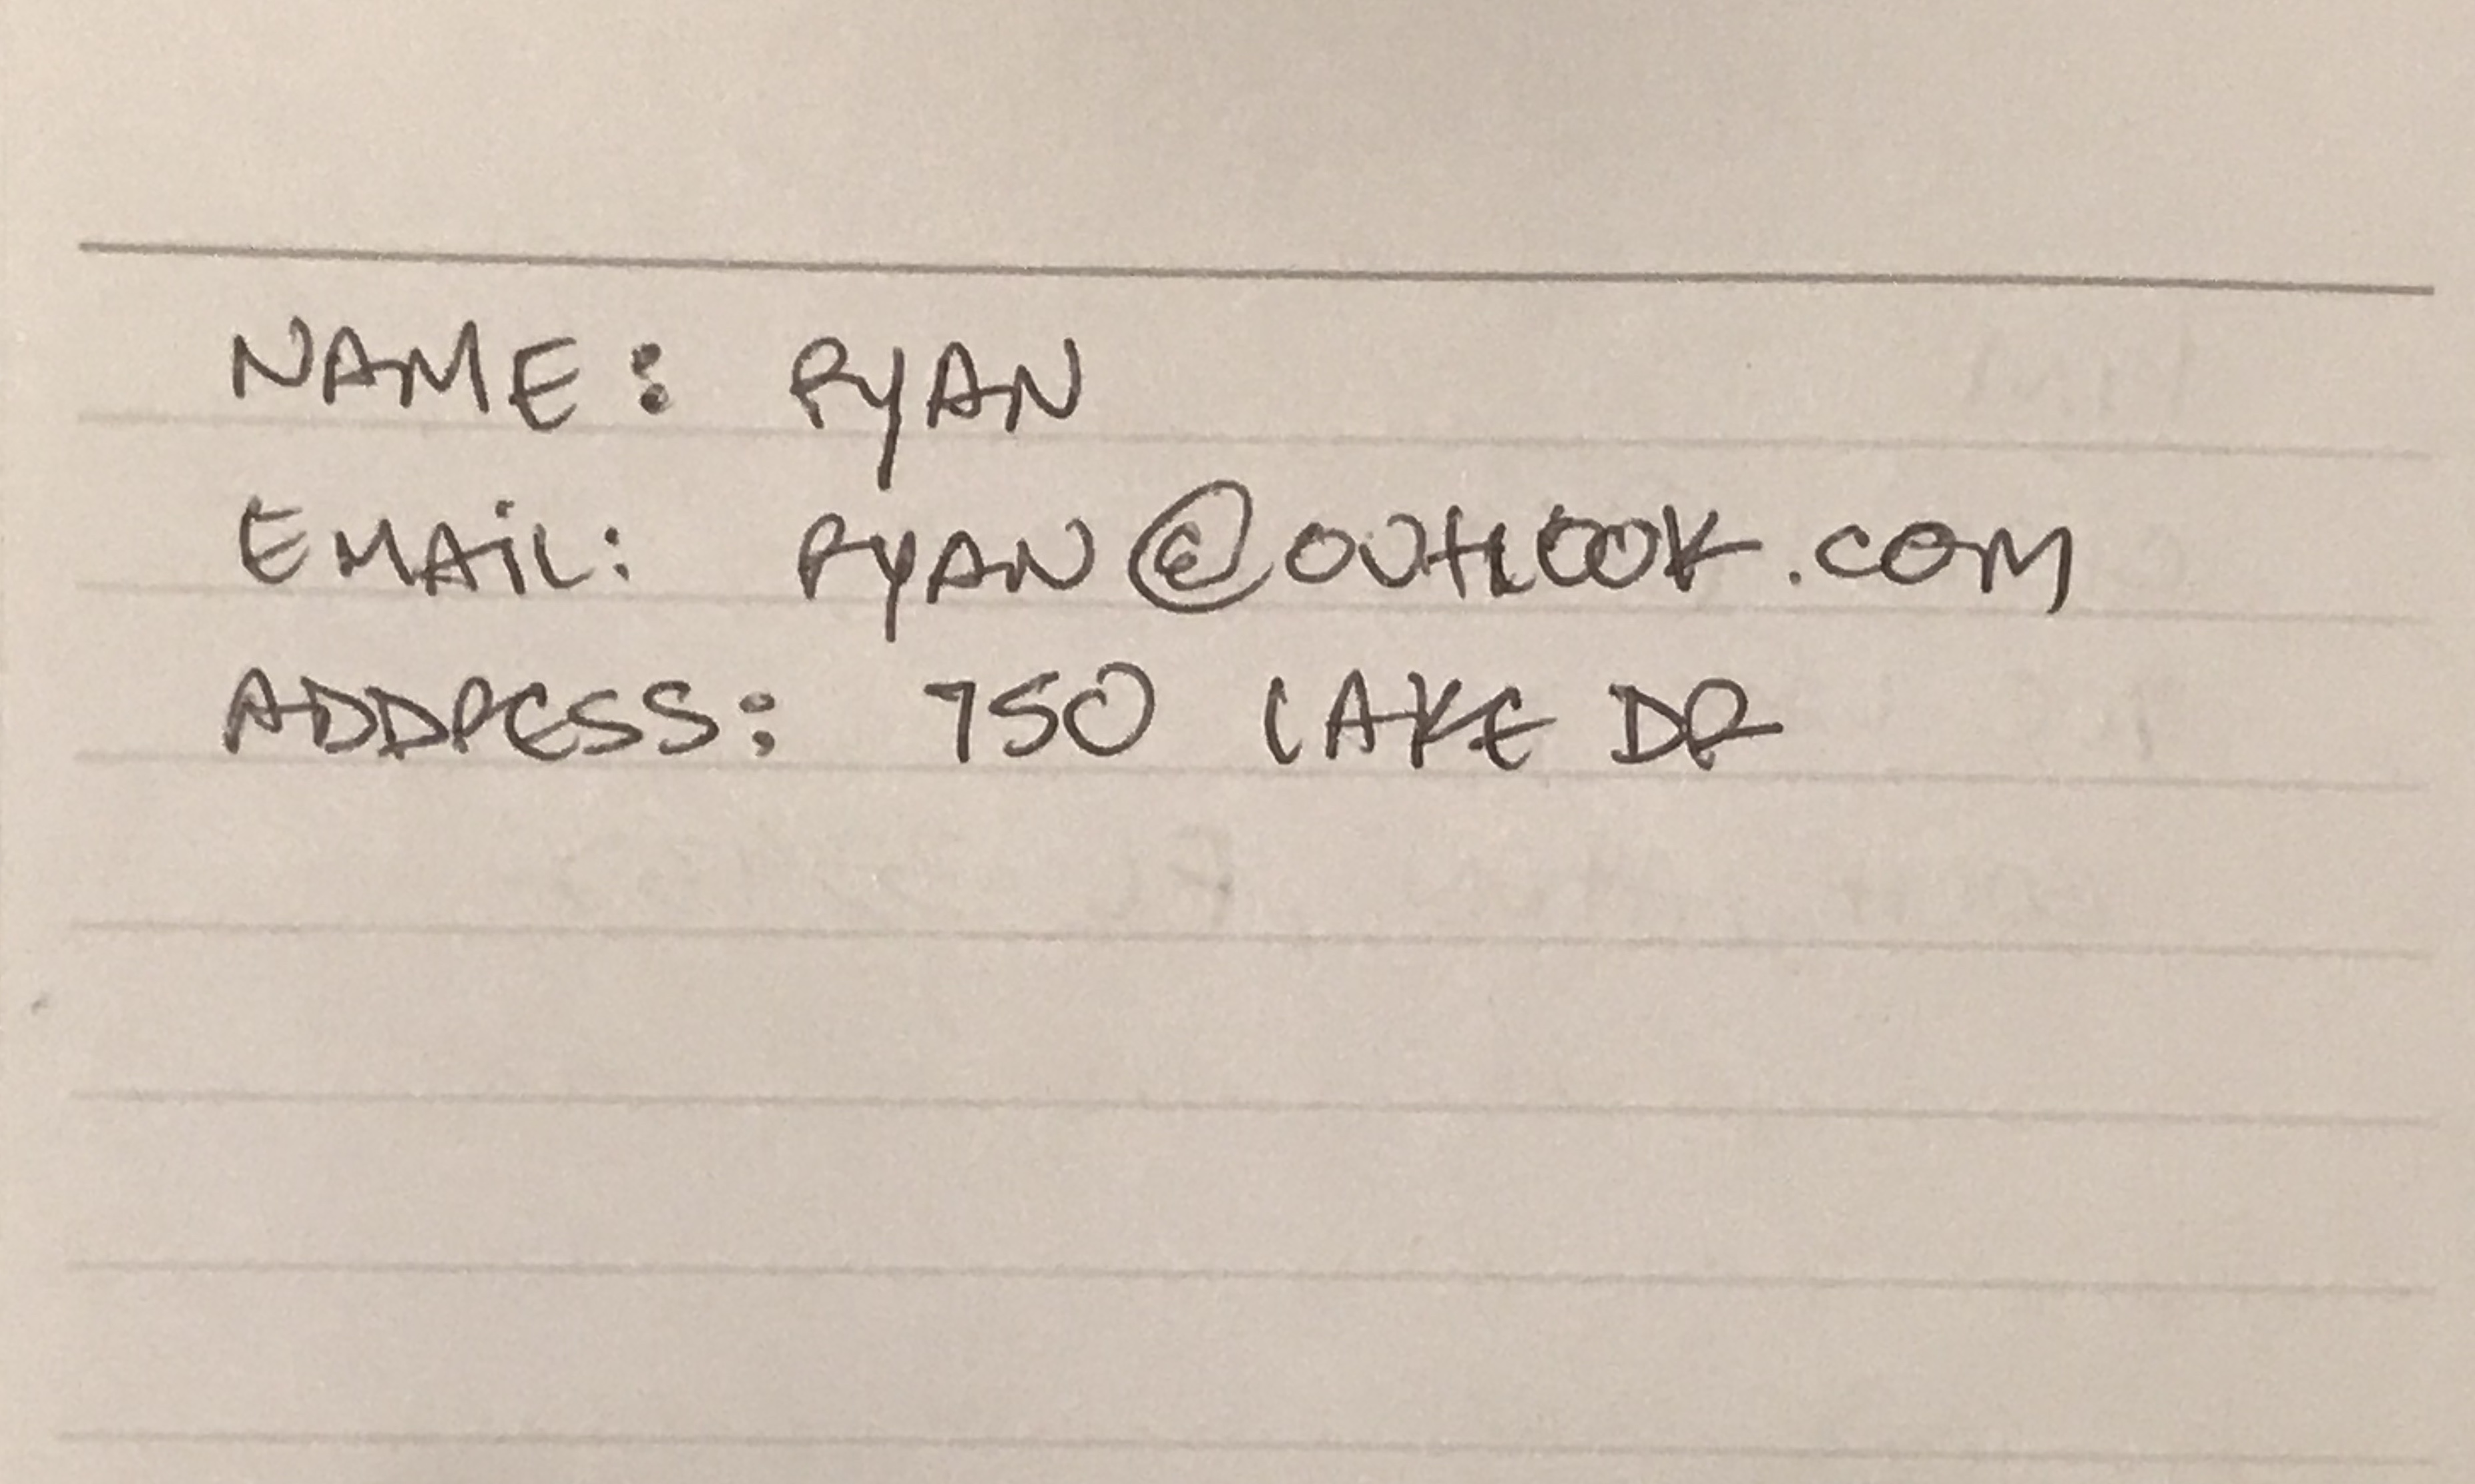 NAME: RYAN
EMAIL: RYAN@OUTLOOK.COM
ADDRESS: 750 LAKE DR